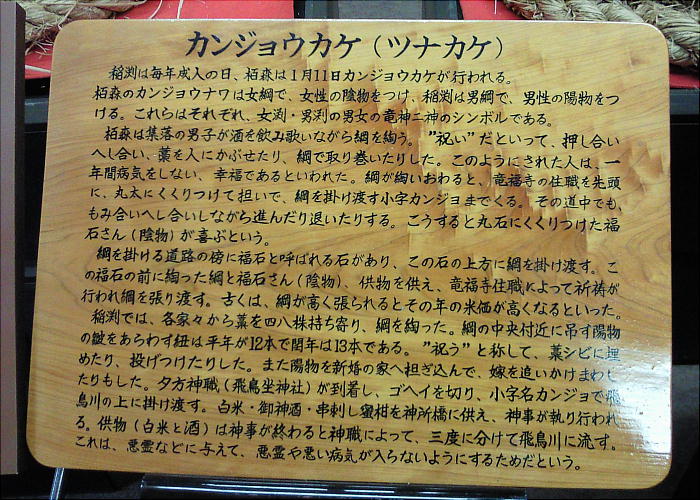 カンジョウカケ（ツナカケ）
稲渕は毎年成人の日、栢森は1月11日カンジョウカケが行われる。
栢森のカンジョウナワは女綱で、女性の陰物をつけ、稲渕は男綱で、男性の陽物をつ
ける。これらはそれぞれ、女渕・男渕の男女の竜神二神のシンボルである。
栢森は集落の男子が酒を飲み歌いながら綱を綯う。”祝い”だといって、押し合い
へし合い、藁を人にかぶせたり、綱で取り巻いたりした。このようにされた人は、一
年間病気をしない、幸福であるといわれた。綱が綯いおわると、竜福寺の住職を先頭
に、丸太にくくりつけて担いで、綱を掛け渡す小字カンジョまでくる。その道中でも、
もみ合いへし合いしながら進んだり退いたりする。こうすると丸石にくくりつけた福
石さん（陰物）が喜ぶという。
綱を掛ける道路の傍に福石と呼ばれる石があり、この石の上方に綱を掛け渡す。こ
の福石の前に綯った綱と福石さん（陰物）、供物を供え、竜福寺住職によって祈祷が
行われ綱を張り渡す。古くは、綱が高く張られるとその年の米価が高くなるといった。
稲渕では、各家々から藁を四八株持ち寄り、綱を綯った。綱の中央付近に吊す陽物
の皺をあらわす紐は平年が12本で閏年は13本である。”祝う”と称して、藁シビに埋
めたり、投げつけたりした。また陽物を新婚の家へ担ぎ込んで、嫁を追いかけまわし
たりもした。夕方神職（飛鳥坐神社）が到着し、ゴヘイを切り、小字名カンジョで飛
鳥川の上に掛け渡す。白米・御神酒・串刺し蜜柑を神所橋に供え、神事が執り行われ
る。供物（白米と酒）は神事が終わると神職によって、三度に分けて飛鳥川に流す。
これは、悪霊などに与えて、悪霊や悪い病気が入らないようにするためだという。